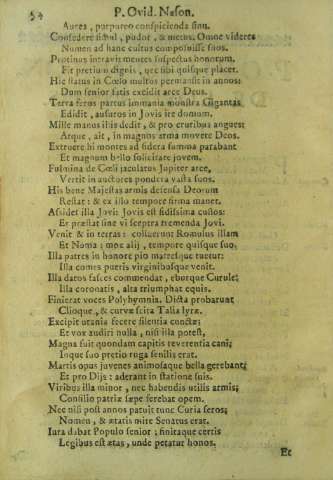 54 P. Ovid. Nason.
Aurea, purpureo conspicienda sinu.
Consedere simul, pudor, & metus. Omne videres
Numen ad hanc cultus composuisse suos.
Protinus intravit mentes suspectus honorum.
Fit pretium dignis, nec sibi quisque placet.
Hic status in Cœlo multos permansit in annos:
Dum senior fatis excidit arce Deus.
Terra feros partus immania monstra Gigantas
Edidit, ausuros in Jovis ire domum.
Mille manus illis dedit, & pro cruribus angues;
Atque, ait, in magnos arma movere Deos.
Extruere hi montes ad sidera summa parabant
Et magnum bello solicitare jovem.
Fulmina de Cœli jaculatus Jupiter arce,
Vertit in auctores pondera vasta suos.
His bene Majestas armis defensa Deorum
Restat: & ex illo tempore firma manet.
Assidet illa Jovi: Jovis est fidissima custos:
Et præstat sine vi sceptra tremenda Jovi.
Venit & in terras: coluerunt Romulus illam
Et Numa: mox alij, tempore quisque suo.
Illa patres in honore pio matresque tuetur:
Illa comes pueris virginibusque venit.
Illa datos fasces commendat, eborque Curule:
Illa coronatis, alta triumphat equis.
Finierat voces Polyhymnia. Dicta probarunt
Clioque, & curvæ scita Talia lyræ.
Excipit urania fecere silentia cunctæ;
Et vox audiri nulla, nisi illa potest.
Magna fuit quondam capitis reverentia cani;
Inque suo pretio ruga senilis erat.
Martis opus juvenes animosaque bella gerebant;
Et pro Dijs: aderant in statione suis.
Viribus illa minor, nec habendis utilis armis;
Consilio patriæ sæpe ferebat opem.
Nec nisi post annos patuit tunc Curia seros;
Nomen, & ætatis mite Senatus erat.
Iura dabat Populo senior; finitaque certis
Legibus est ætas, unde petatur honos.
Et